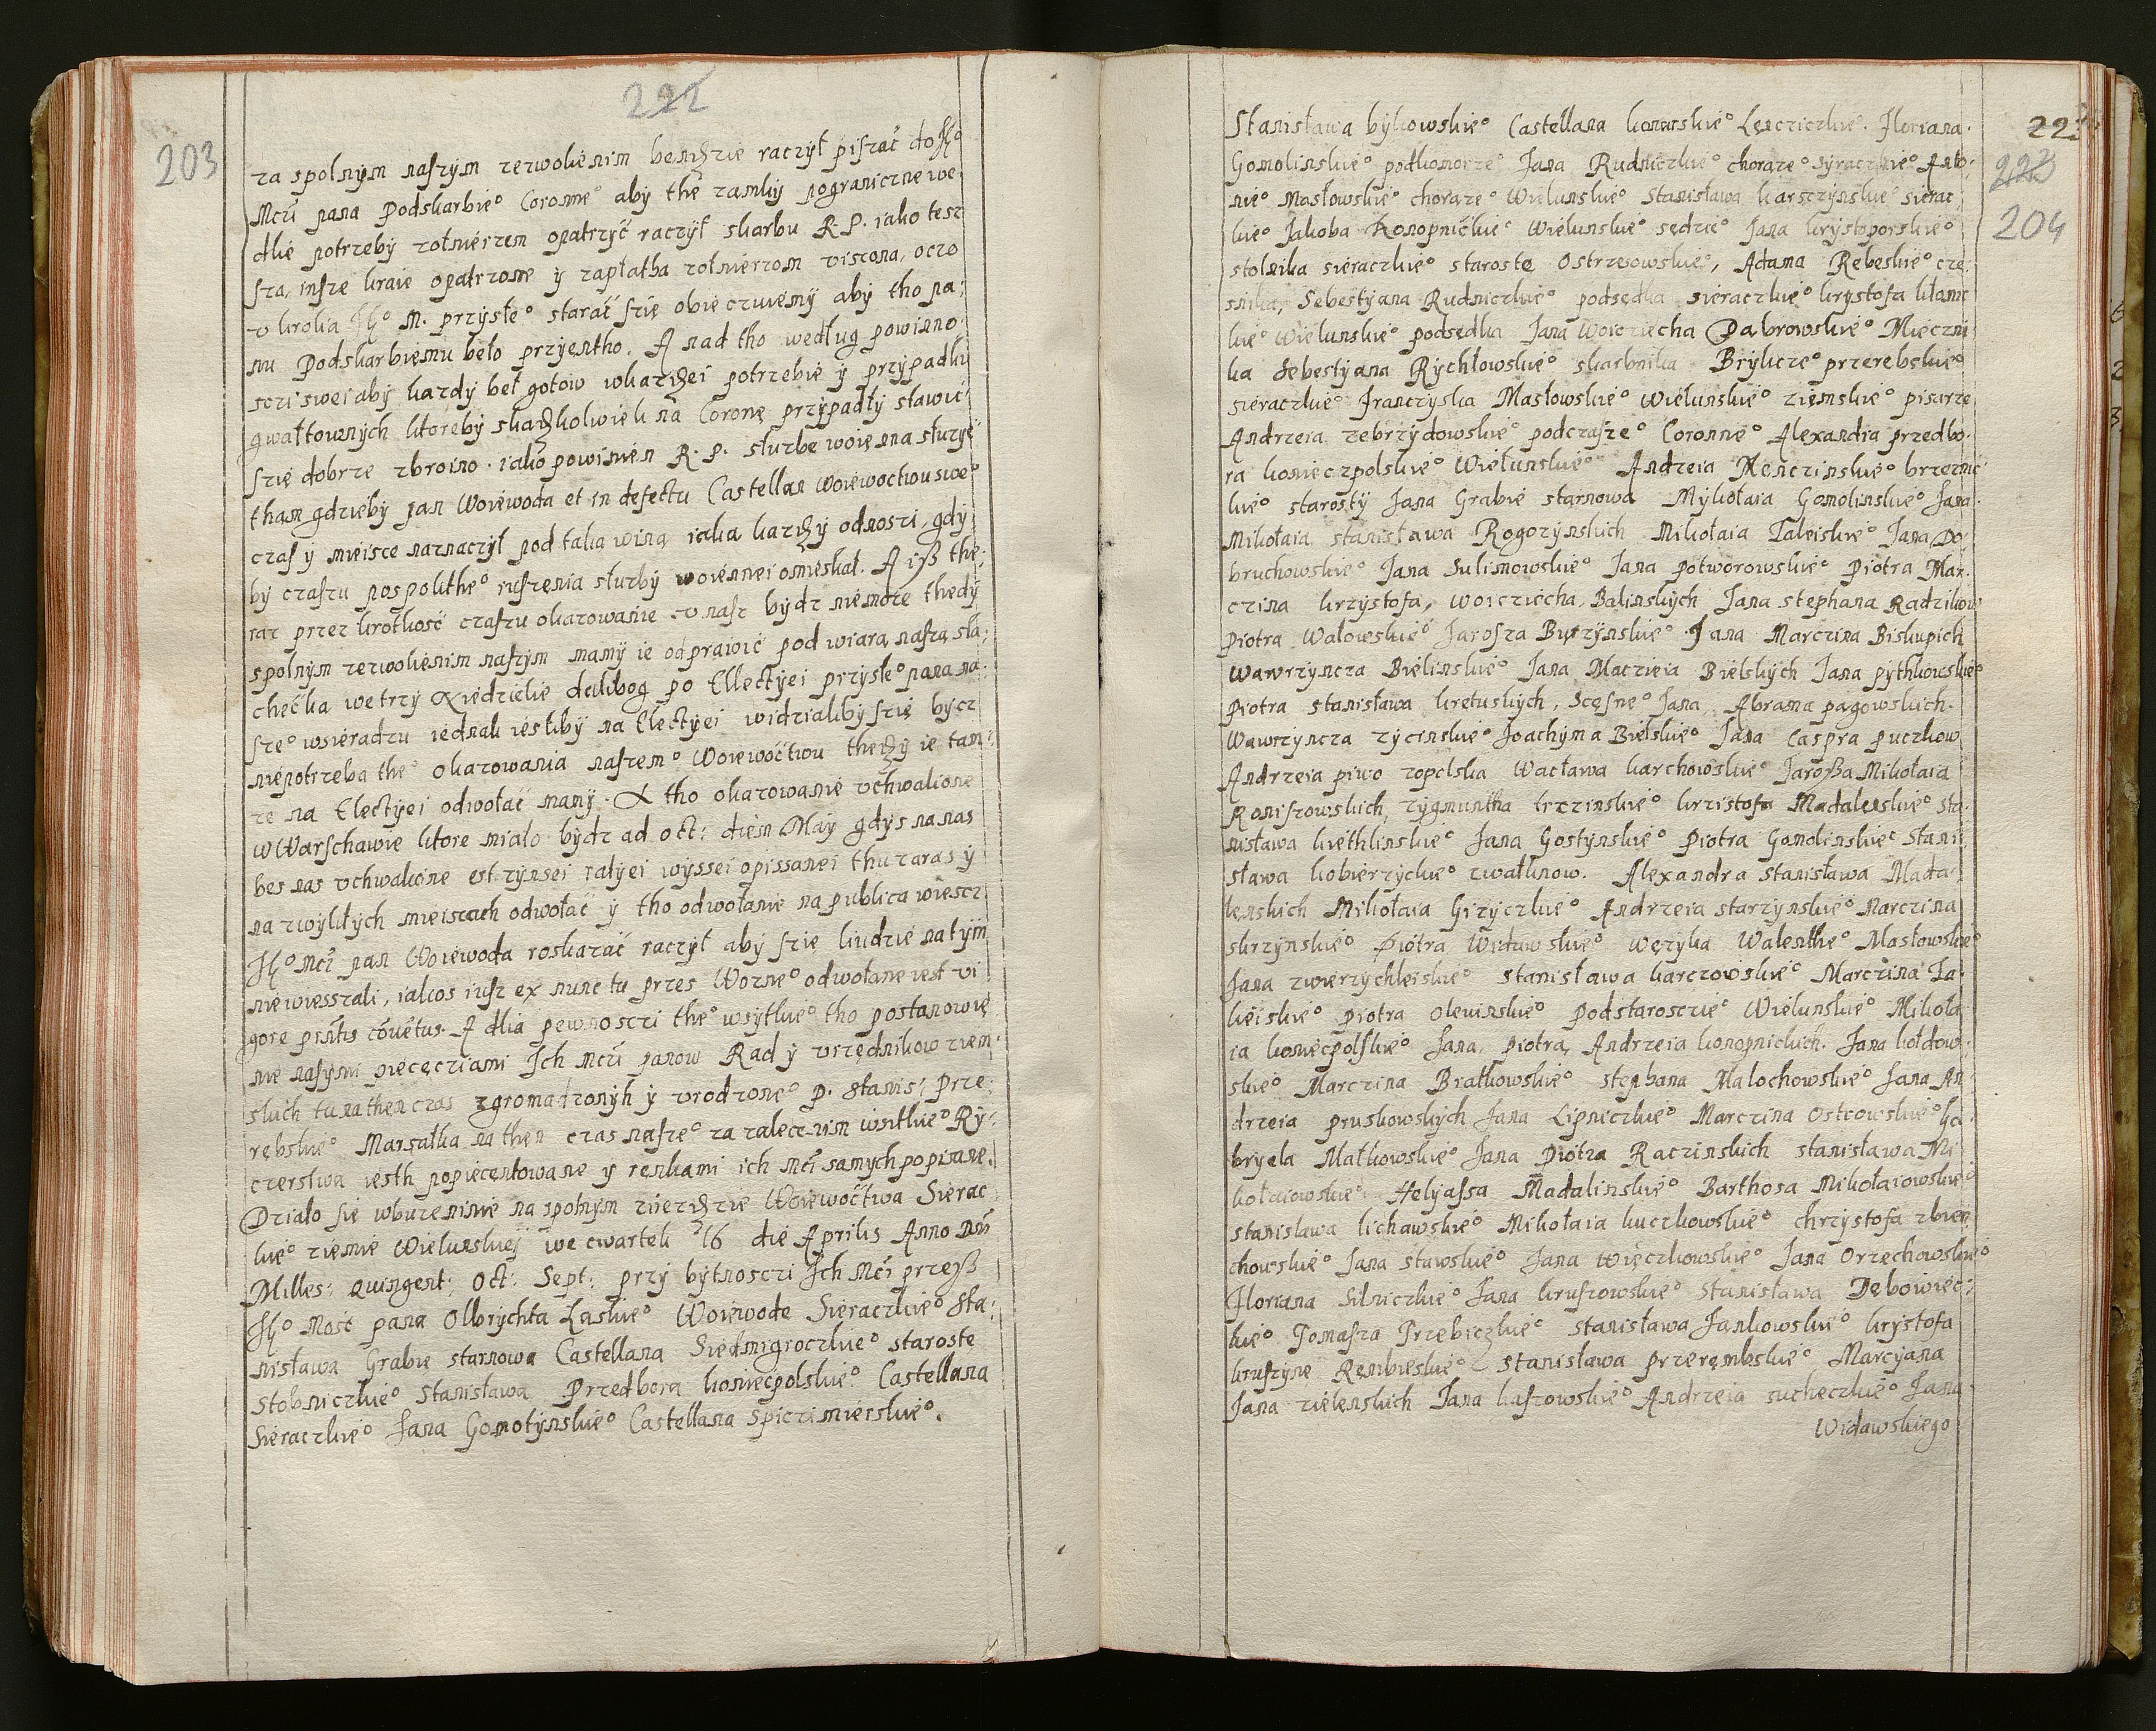 222
203
za spolnym naszym zezwolienim bendzie raczył piszać do Jeᵒ
Mczi pana Podskarbieᵒ Coronneᵒ aby the zamky pograniczne we:
dlie potrzeby zołnierzem opatrzyć raczył skarbu R. P. iako tesz
sza, insze kraie opatrzone y zapłatha zołnierzom viszczona, oczo
v krolia Jeᵒ M. przysłeᵒ starać szie obieczuiemy aby tho pa:
nu Podskarbiemu beło przyientho. A nad tho według powinno:
sczi swei aby kazdy beł gotow wkazdzei potrzebie y przypadku
gwałtownych ktoreby skądzkolwiek na Coronę przypadły stawić
szie dobrze zbroino. iako powinien R. P. słuzbe woienna słuzyć
tham gdzieby pan Woiewoda et in defectu Castellan Woiewoctwu sweᵒ
czas y mieisce naznaczył pod taka winą iaka kazdzy odnosci, gdy
by czaszu pospolitheᵒ ruszenia słuzby woiennei omieskał. A iß the:
raz przez krotkość czaszu okazowanie v nasz bydz niemoze thedy
spolnym zezwolienim naszym mamy ie odprawić pod wiarą naszą sla:
chećka we trzy Niedzielie dalibog po Ellectyei przysłeᵒ pana na:
szeᵒ wsieradzu iednak iesliby na Electyei widzialiby szię bycz
niepotrzeba theᵒ okazowania naszemᵒ Woiewoćtwu thedzy ie tam:
ze na Electyei odwołać mamy. A tho okazowanie vchwalione
w Warschawie ktore miało bydz ad oct: diem May gdys na nas
bes nas vchwalione est zynsei ratyei wyssei opissanei thu zaras y
na zwykłych mieiscach odwołać y tho odwołanie na publica wiescz
Jeᵒ Mći pan Woiewoda roskazać raczył aby szie liudzie na tym
niewiesszali, iakos iusz ex nunc tu przes Wozneᵒ odwołane iest vi
gore pntis cōuētus. A dlia pewnosczi theᵒ wsytkieᵒ tho postanowie
nie naszymi pieczęcziami Ich Mći panow Rad y vrzędnikow ziem:
skich tu na then czas zgromadzonyh y vrodzoneᵒ P. Stanis: Prze:
rębskieᵒ Marsałka na then czas naszeᵒ za zalecenim wsitkieᵒ Ry:
czerstwa iesth popieczentowane y renkami ich mći samych popisane.
Działo sie wburzeninie na spolnym ziezdzie Woiewoćtwa Sierac
kieᵒ ziemie Wielunskiey we cwartek 16 die Aprilis Anno Dni
Milles: quingent: Oct: Sept: przy bytnosczi Ich Mći przeß
Jeᵒ Mość pana Olbrychta Łaskieᵒ Woiewode Sieraczkieᵒ Sta:
nisława Grabie starnowa Castellana Siedmigroczkieᵒ staroste
Stobniczkieᵒ Stanisława Przedbora koniecpolskieᵒ Castellana
Sieraczkieᵒ Jana Gomolynskieᵒ Castellana Spiczimierskieᵒ.
Stanisława bykowskieᵒ Castellana konarskieᵒ Lęncziczkieᵒ. Floriana.
Gomolinskieᵒ podkomorzeᵒ Jana Rudniczkieᵒ chorązeᵒ syraczkieᵒ Anto:
nieᵒ Masłowskieᵒ chorązeᵒ Wielunskieᵒ Stanisława karsczynskieᵒ sierac
kieᵒ Jakoba Konopnickieᵒ Wielunskieᵒ sędzieᵒ Jana krysztoporskieᵒ
stolnika sieraczkieᵒ staroste Ostrzesowskieᵒ, Adama Rębeskieᵒ cze:
snika, Sebestyana Rudniczkieᵒ podsędka sieraczkieᵒ krystofa kłonic
kieᵒ Wielunskieᵒ podsędka Jana Woicziecha Dabrowskieᵒ Mieczni
ka Sebestyana Rychłowskieᵒ skarbnika Brykczeᵒ przerebskieᵒ
sieraczkieᵒ Franczyska Masłowskieᵒ Wielunskieᵒ ziemskieᵒ pisarze
Andrzeia zebrzydowskieᵒ podczaszeᵒ Coronneᵒ Alexandra przedbo.
ra koniecpolskieᵒ Wielunskieᵒ Andreia Męnczinskieᵒ brzeznic
kieᵒ starosty Jana Grabie starnowa Mykołaia Gomolinskieᵒ Jana.
Mikołaia stanisława Rogozynskich Mikołaia Taleiskieᵒ Jana Do
bruchowskieᵒ Jana Sulimowskieᵒ Jana potworowskieᵒ Piotra Mar.
czina krzystofa, woicziecha, Balinskych Jana stephana Radzikow
Piotra Wałowskieᵒ Jarosza Buczynskieᵒ Jana Marczina Biskupich
Wawrzyncza Bielinskieᵒ Jana Maczieia Bielskych Jana pythkowskieᵒ
Piotra stanisława kretuskych, Scęsneᵒ Jana, Abrama pągowskich.
Wawrzyncza zycinskieᵒ Joachyma Bielskieᵒ Jana Caspra puczkow
Andrzeia piwo zopelska Wacława karchowskieᵒ Jaroßa Mikołaia
Koniszowskich, zygmuntha trzinskieᵒ krzistofa Madalenskieᵒ sta.
nisława kwethlinskieᵒ Jana Gostynskieᵒ Piotra Gomolinskieᵒ Stani
sława kobierzyckieᵒ zwałknow. Alexandra stanisława Mada.
lenskich Mikołaia Gizyczkieᵒ Andrzeia starzynskieᵒ Marczina
skrzynskieᵒ Piotra Widawskieᵒ węzyka Walentheᵒ Masłowskieᵒ
Jana zwierzychleiskieᵒ stanisława karczowskieᵒ Marczina Ta.
lieiskieᵒ piotra olewinskieᵒ podstarosczieᵒ Wielunskieᵒ Mikoła
ia koniecpolskieᵒ Jana, piotra, Andrzeia konopnickich. Jana kołdow:
skieᵒ Marczina Bratkowskieᵒ stephana Małochowskieᵒ Jana An
drzeia pruskowskych Jana Lipniczkieᵒ Marczina Ostrowskieᵒ Ga
bryela Małkowskieᵒ Jana Piotra Raczinskich stanisława Mi
kołaiowskieᵒ Helyassa Madalinskieᵒ Barthosa Mikołaiowskieᵒ
stanisława lichawskieᵒ Mikołaia kuczkowskieᵒ chrzystofa zbier
chowskieᵒ Jana stawskieᵒ Jana więczkowskieᵒ Jana Orzechowskieᵒ
Floriana Silniczkieᵒ Jana kruszowskieᵒ Stanisława Dębowiec:
kieᵒ Tomasza Trzebiczkieᵒ stanisława Jankowskieᵒ krystofa
kruszyne Rembieskieᵒ stanisława przerembskieᵒ Marcyana
Jana zielenskich Jana kaszowskieᵒ Andrzeia sucheczkieᵒ Jana
Widawskiego
223
204